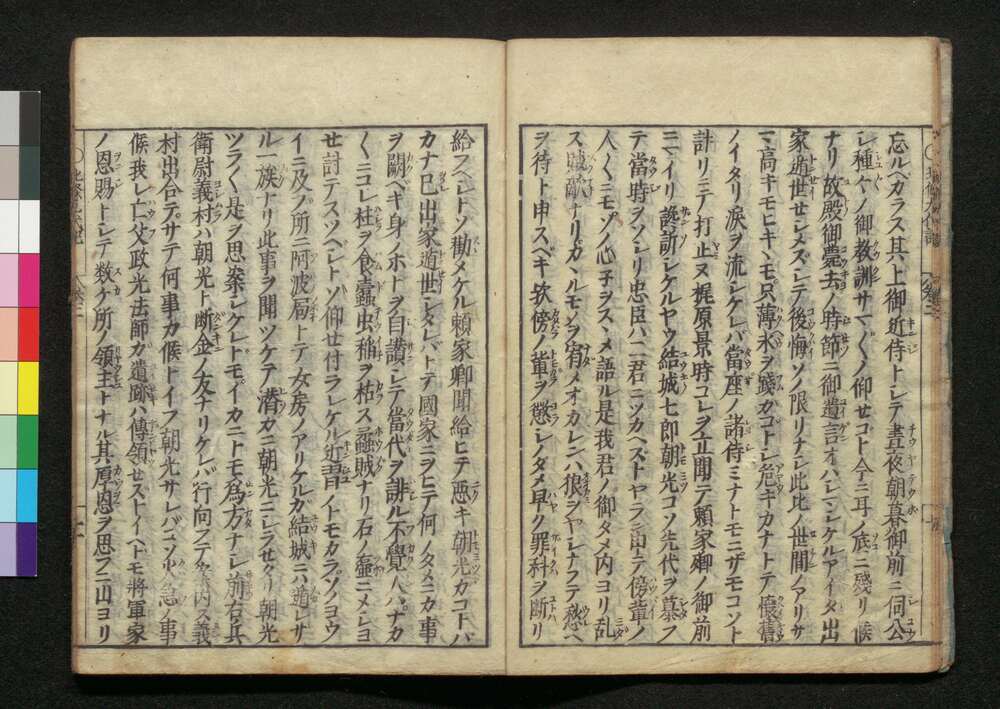 忘ルヘカラス其上御近侍トシテ晝夜朝暮御前ニ伺公
シ種々ノ御教訓サマ〱ノ仰セコト今ニ耳ノ底ニ殘リ候
ナリ故殿御薨去ノ時節ニ御遺言オハシマシケルアイタ出
家遁世セシメズシテ後悔ソノ限リナシ此比ノ世間ノアリサ
マ高キモヒキヽモ只薄氷ヲ踐カコトシ危キカナトテ懷舊
ノイタリ涙ヲ流シケレバ當座ノ諸侍ミナトモニサモコソト
計リニテ打止ヌ梶原景時コレヲ立聞テ頼家卿ノ御前
ニイリ讒訴シケルヤウ結城七郎朝光コソ先代ヲ慕フ
テ當時ヲソシリ忠臣ハ二君ニツカヘズトヤラン申テ傍輩ノ
人〱ニモソノ心子ヲスヽメ語ル是我君ノ御タメ内ヨリ乱
ス賊敵ナリカヽルモノヲ宥メオカレンハ狼ヲヤシナフテ愁ヘ
ヲ待ト申スベキ欤傍ノ輩ヲ懲シノタメ早ク罪科ヲ断リ
給スヘシトソ勸メケル頼家卿聞給ヒテ悪キ朝光カコトバ
カナ已出家遁世シタレバトテ國家ニヲヒテ何ノタメニカ事
ヲ闕ベキ身ノホトヲ自讃シテ當代ヲ誹ル不覺人ハナカ
〱ニコレ柱ヲ食蠹虫稲ヲ枯ス蟊賊ナリ石ノ壷ニメシヨ
セ討テスツヘシトソ仰セ付ラレケル近習ノトモカラソノヨウ
イニ及ノ所ニ阿波局トテ女房ノアリケルカ結城ニハ遁レサ
ル一族ナリ此事ヲ聞ツケテ潜カニ朝光ニシラセタリ朝光
ツラ〱是ヲ思案シケレトモイカニトモ為方ナシ前右兵
衛尉義村ハ朝光ト断金ノ友ナリケレバ行向フテ案内ス義
村出合テサテ何事カ候トイフ朝光サレバコソ火急ノ事
候我レ亡父政光法師カ遺跡ハ傳領セストイヘトモ將軍家
ノ恩賜トシテ数ケ所ノ領主トナル其厚恩ヲ思フニ山ヨリ